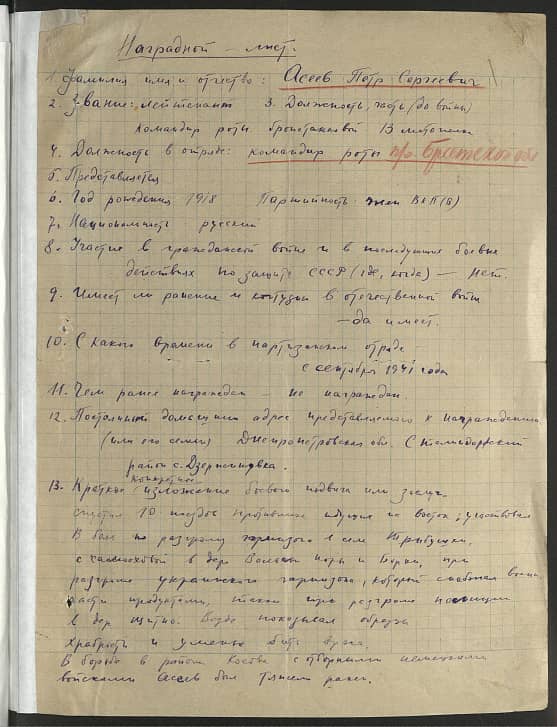 Наградной - лист.
1. Фамилия имя и отчество: Асеев Петр Сергеевич
2. Звание: лейтенант 3. Должность, часть (до войны)
Командир роты бронетанковой 13
4. Должность в отряде: командир роты пр. Брестской обл
5. Представляется
6. Год рождения 1918 Партийность: член ВКП(б)
7. Национальность русский
8. Участие в гражданской войне и в последующих боевых
действиях по защите СССР (где, когда) — нет.
9. Имеет ли ранение и контузии в отечественной войне
— да имеет.
10. С какого времени в партизанском отряде
с сентября 1941 года
11. Чем ранее награжден — не награжден.
12. Постоянный домашний адрес представляемого к награждению
(или его семьи) Днепропетровская обл.
район с. Дзержиновка.
конкретное
13. Краткое изложение боевого подвига или заслуг
спустил 10 поездов противника идущих на восток; участвовал
В бою по разгрому гарнизона в селе
в дер и Борки, при
разгроме украинского гарнизона, который снабжал
части продуктами, также при разгроме полиции
в дер Щитно. Везде показывал образцы
храбрости и умению бить врага.
В борьбе в районе с отборными немецкими
войсками Асеев был тяжело ранен.